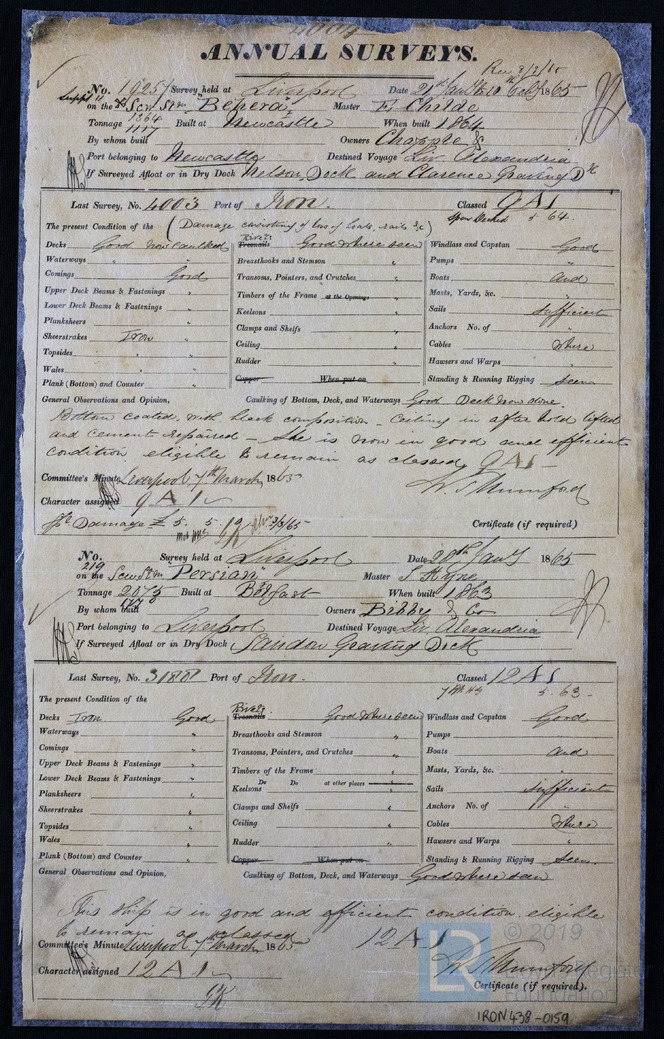 4004
ANNUAL SURVEYS.
Rec 3/3/65
No. 19251 Survey held at Liverpool Date 21st Jany & 10th Feby 1865
on the Scw Stm Master E Childe
Tonnage 1364 Built at Newcastle When built 1864
1117
By whom built Owners Chapple &
Port belonging to Newcastle Destined Voyage Liv. Alexandria
If Surveyed Afloat or in Dry Dock Nelson Dock and Clarence Graving Dk
Last Survey, No. 4003 Port of Iron. Classed 9A1
Spar Decked 5 64
The present Condition of the (Damage consisting of loss of boats, rails &c)
Decks Good now caulked Rivets Treenails Good where seen Windlass and Capstan Good
Waterways " " Breasthooks and Stemson " Pumps "
Comings Good Transoms, Pointers, and Crutches " Boats and
Upper Deck Beams & Fastenings " Timbers of the Frame at the Openings " Masts, Yards, &c. "
Lower Deck Beams & Fastenings " Keelsons " Sails sufficient
Planksheers " Clamps and Shelfs " Anchors No. of "
Sheerstrakes Iron " Ceiling " Cables where
Topsides " Rudder " Hawsers and Warps "
Wales " Copper When put on Standing & Running Rigging seen
Plank (Bottom) and Counter "
General Observations and Opinion, Caulking of Bottom, Deck, and Waterways Good Deck now done
Bottom coated with black composition - Ceiling in after hold lifted
and cement repaired - She is now in good and efficient
condition eligible to remain as classed 9A1 -
Committee's Minute Liverpool 7th March 1865
W. S. Mumford
Character assigned 9A1
Damage £5. 5 3/3/65 Certificate (if required)
No. 219 Survey held at Liverpool Date 28th Jany 1865
on the Scw Stm Persian Master S Hyne
Tonnage 2075 Built at Belfast When built 1863
By whom built Owners Bibby & Co
Port belonging to Liverpool Destined Voyage Liv. Alexandria
If Surveyed Afloat or in Dry Dock Sandon Graving Dock
Last Survey, No. Port of Iron. Classed 12A1
5. 63 -
The present Condition of the
Decks Iron Good Rivets Treenails Good where seen Windlass and Capstan Good
Waterways " Breasthooks and Stemson " Pumps "
Comings " Transoms, Pointers, and Crutches " Boats and
Upper Deck Beams & Fastenings " Timbers of the Frame " Masts, Yards, &c. "
Lower Deck Beams & Fastenings " Do Do at other places
Keelsons " Sails sufficient
Planksheers " Clamps and Shelfs " Anchors No. of "
Sheerstrakes " Ceiling " Cables where
Topsides " Rudder " Hawsers and Warps "
Wales " Copper When put on Standing & Running Rigging seen.
Plank (Bottom) and Counter "
General Observations and Opinion, Caulking of Bottom, Deck, and Waterways Good where seen
This Ship is in good and efficient condition eligible
to remain as classed 12A1
Committee's Minute Liverpool 7th March 1865
W. S. Mumford
Character assigned 12A1 Certificate (if required).
© 2019
LR
Lloyd's Register
Foundation
IRON438-0159